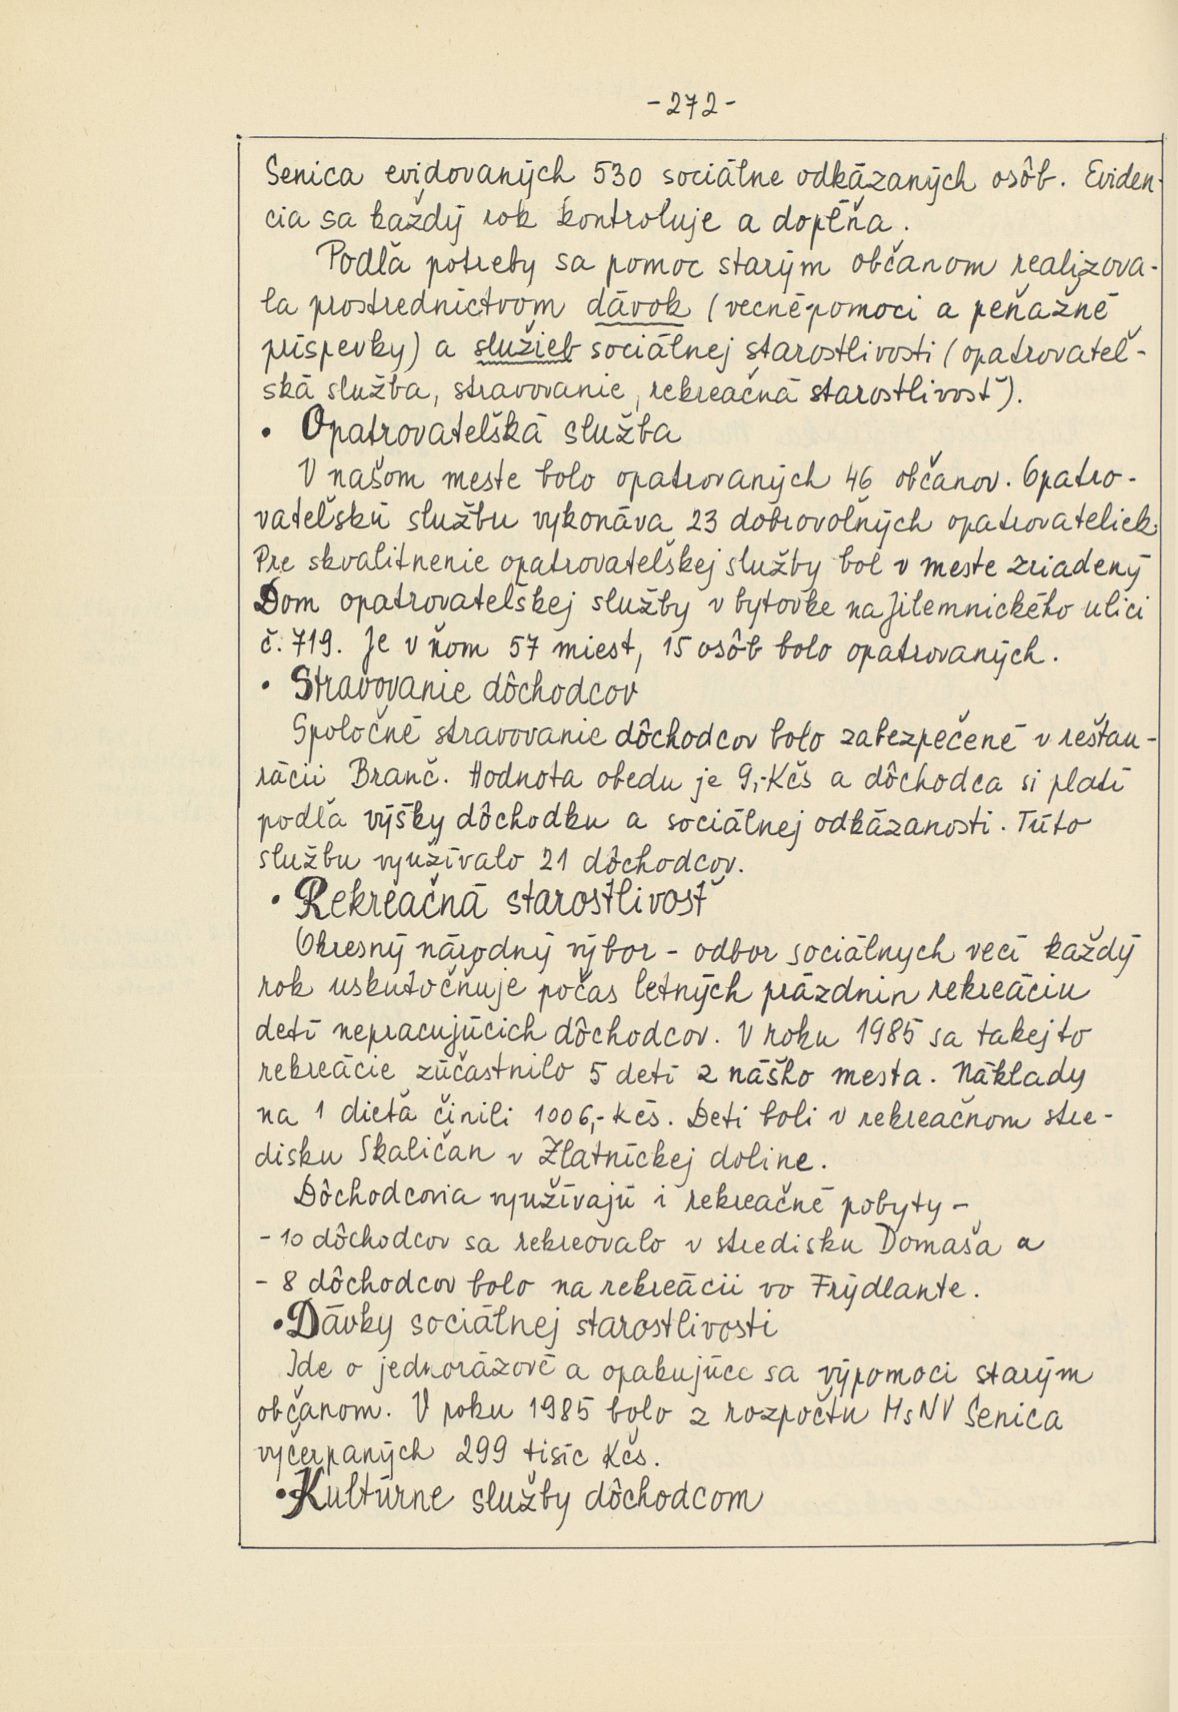 -272-
Senica evidovaných 530 sociálne odkázaných osôb. Eviden-
cia sa každý rok kontroluje a dopĺňa.
Podľa potreby sa pomoc starým občanom realizova-
la prostredníctvom dávok (vecné pomoci a peňažné
príspevky) a služieb sociálnej starostlivosti (opatrovateľ-
ská služba, stravovanie, rekreačná starostlivosť).
• Opatrovateľská služba
V našom meste bolo opatrovaných 46 občanov. Opatro-
vateľskú službu vykonáva 23 dobrovoľných opatrovateliek.
Pre skvalitnenie opatrovateľskej služby bol v meste zriadený
Dom opatrovateľskej služby v bytovke na Jilemnického ulici
č. 719. Je v ňom 57 miest, 15 osôb bolo opatrovaných.
• Stravovanie dôchodcov
Spoločné stravovanie dôchodcov bolo zabezpečené v reštau-
rácii Branč. Hodnota obedu je 9,-Kčs a dôchodca si platí
podľa výšky dôchodku a sociálnej odkázanosti. Túto
službu využívalo 21 dôchodcov.
• Rekreačná starostlivosť
Okresný národný výbor - odbor sociálnych vecí každý
rok uskutočňuje počas letných prázdnin rekreáciu
detí nepracujúcich dôchodcov. V roku 1985 sa takejto
rekreácie zúčastnilo 5 detí z nášho mesta. Náklady
na 1 dieťa činili 1006,- Kčs. Deti boli v rekreačnom stre-
disku Skaličan v Zlatníckej doline.
Dôchodcovia využívajú i rekreačné pobyty -
- 10 dôchodcov sa rekreovalo v stredisku Domaša a
- 8 dôchodcov bolo na rekreácii vo Frýdlante.
• Dávky sociálnej starostlivosti
Ide o jednorázové a opakujúce sa výpomoci starým
občanom. V roku 1985 bolo z rozpočtu MsNV Senica
vyčerpaných 299 tisíc Kčs.
• Kultúrne služby dôchodcom